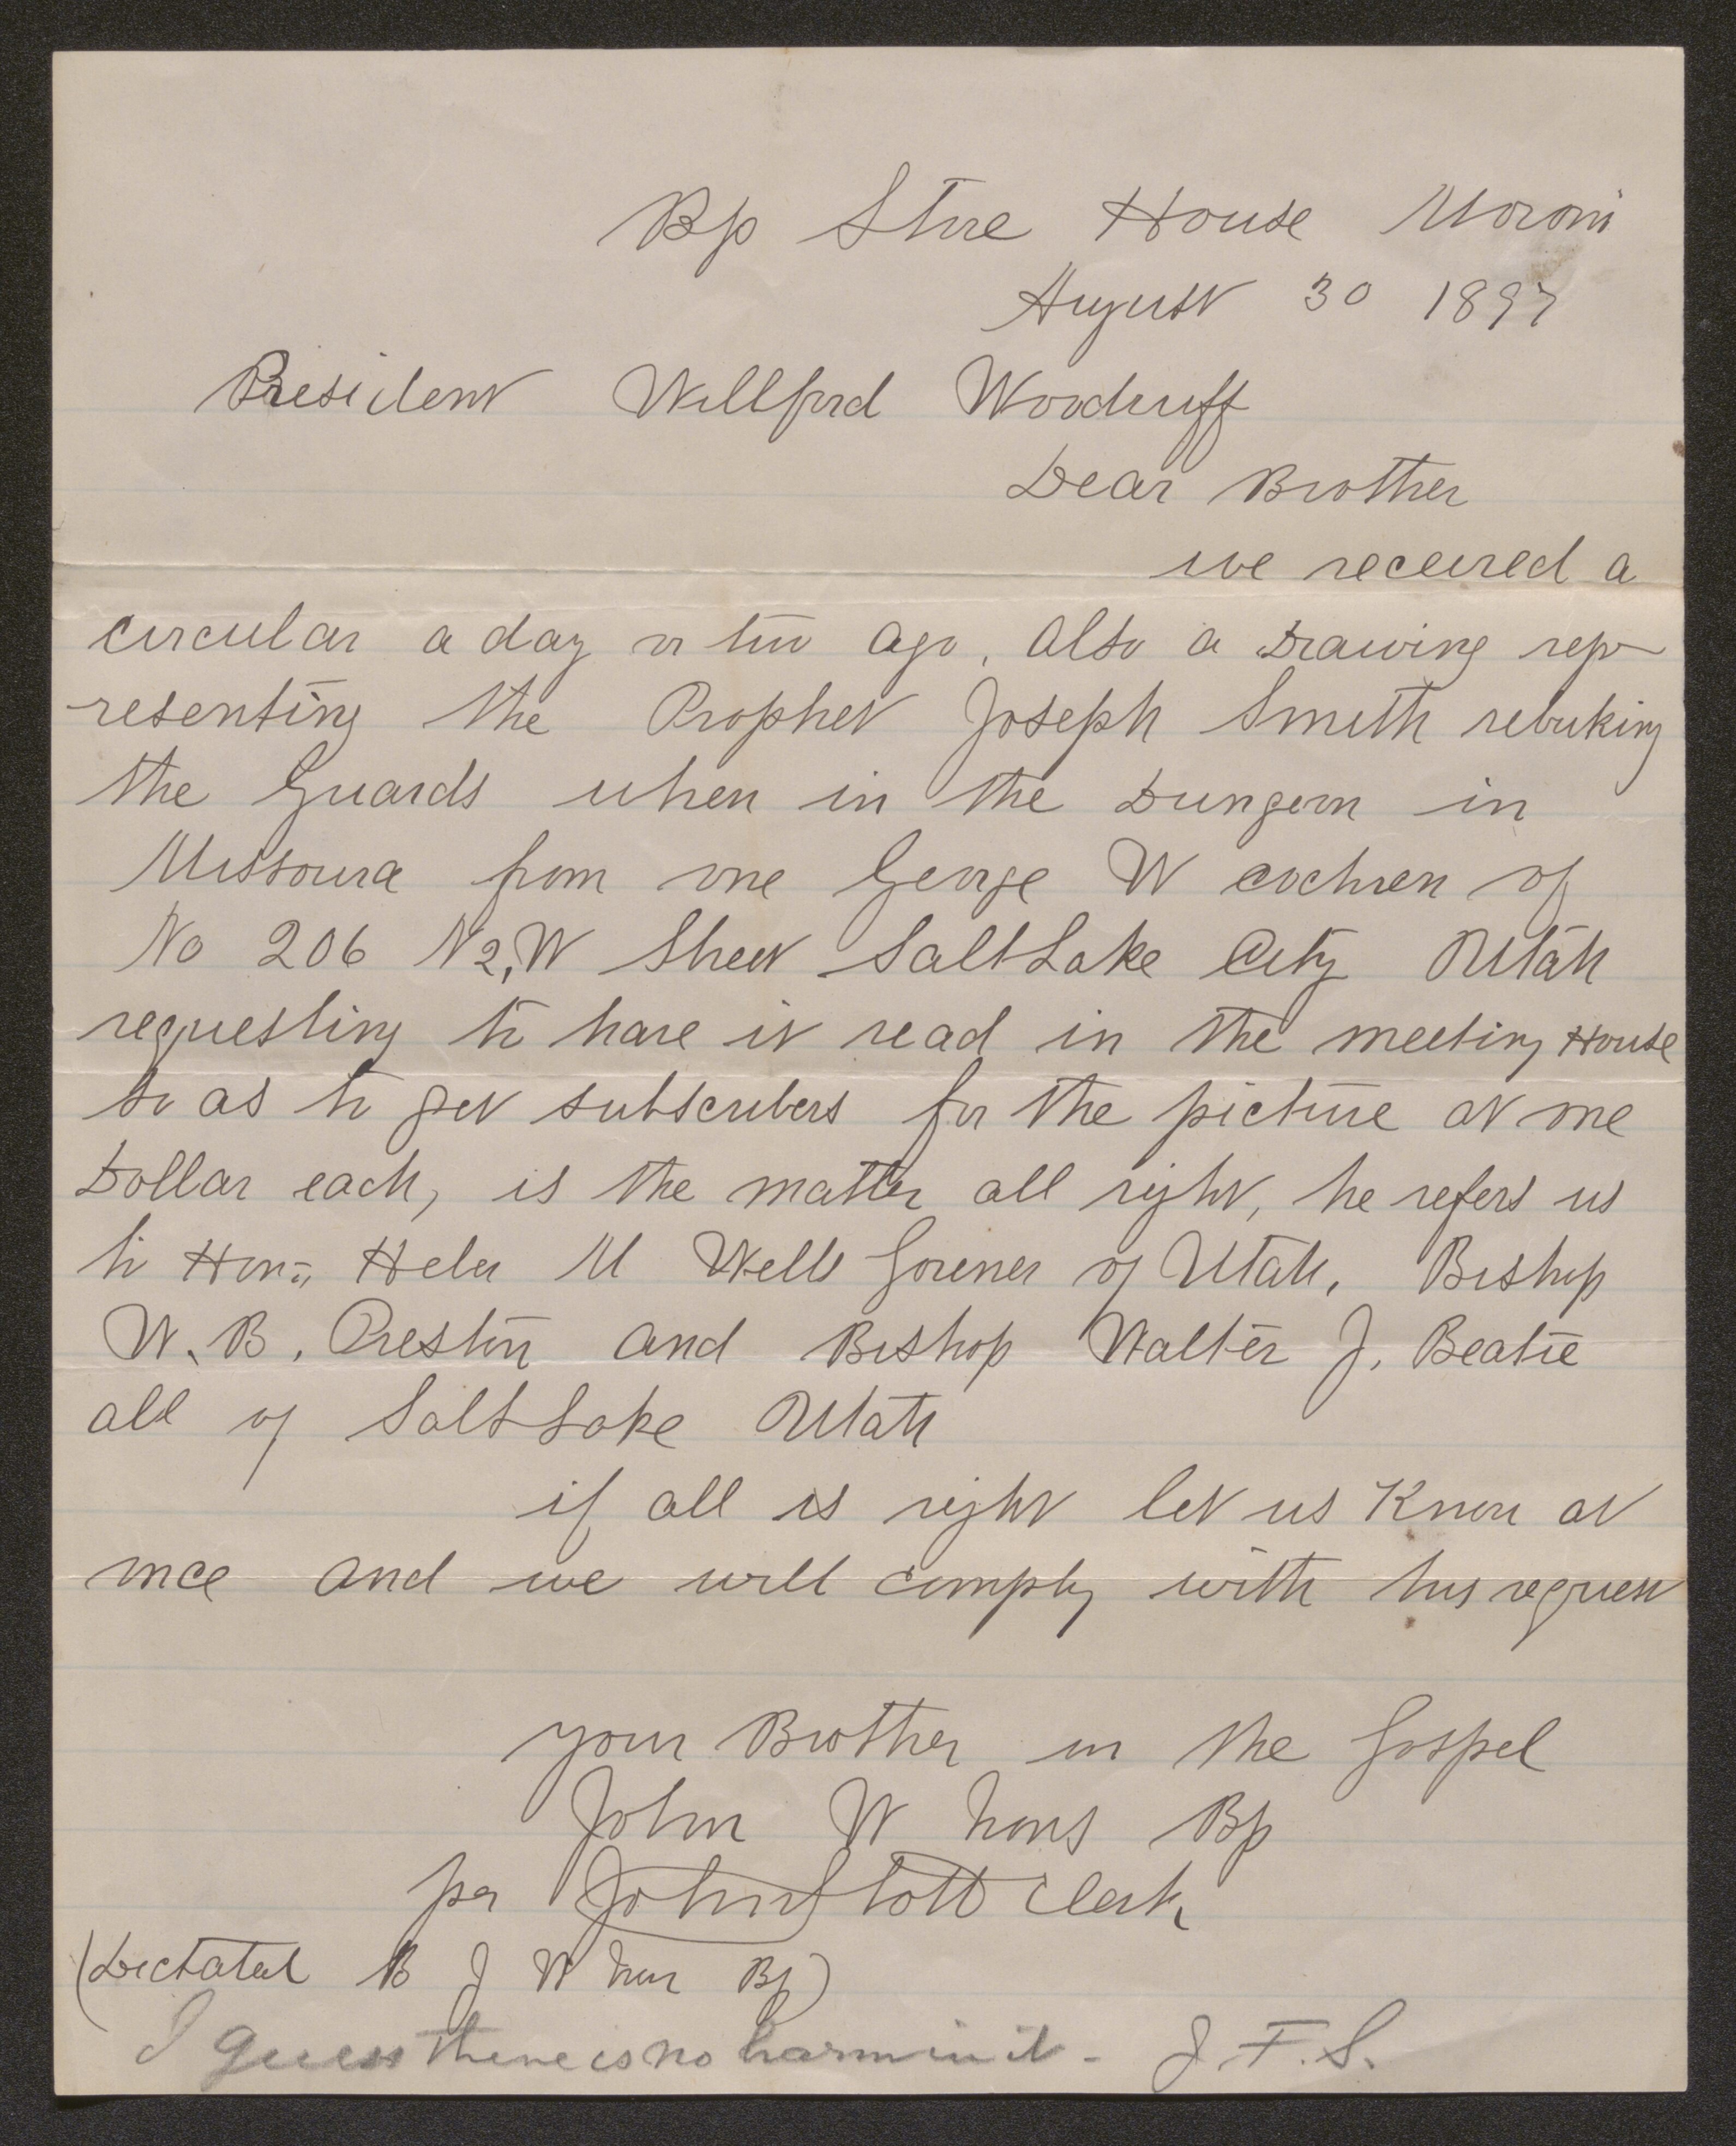 Bp Store House Moroni
August 30 1897
President Willford Woodruff
Dear Brother
we received a
circular a day or two ago, also a Drawing rep-
-resenting the Prophet Joseph Smith rebuking
the Guards when in the Dungeon in
Missoura from one George W cochren of
No 206 N 2, W Street Salt Lake City Utah
requesting to have it read in the meeting House
so as to get subscribers for the picture at one
Dollar each, is the matter all right, he refers us
to Hon. Heber M Wells Goviner of Utah, Bishop
W. B. Preston and Bishop Walter J. Beatie
all of Salt Lake Utah
if all is right let us Know at
once and we will comply with his request
your Brother in the Gospel
John W Irons Bp
per John Stott Clerk
(Dictated B J W Bp)
I guess there is no harm in it - J. F. S.